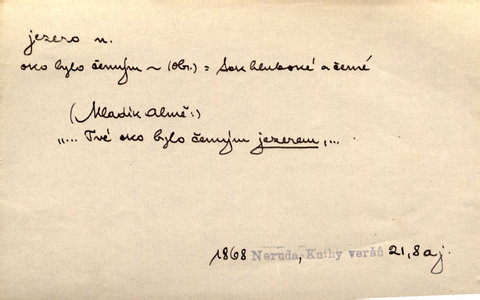 jezero n.
oko bylo černým ~ (obr.) = tak hluboké a černé
(Mladík Almě:)
„... Tvé oko bylo černým jezerem,...
1868 Neruda, Knihy veršů 21, 8 a j.